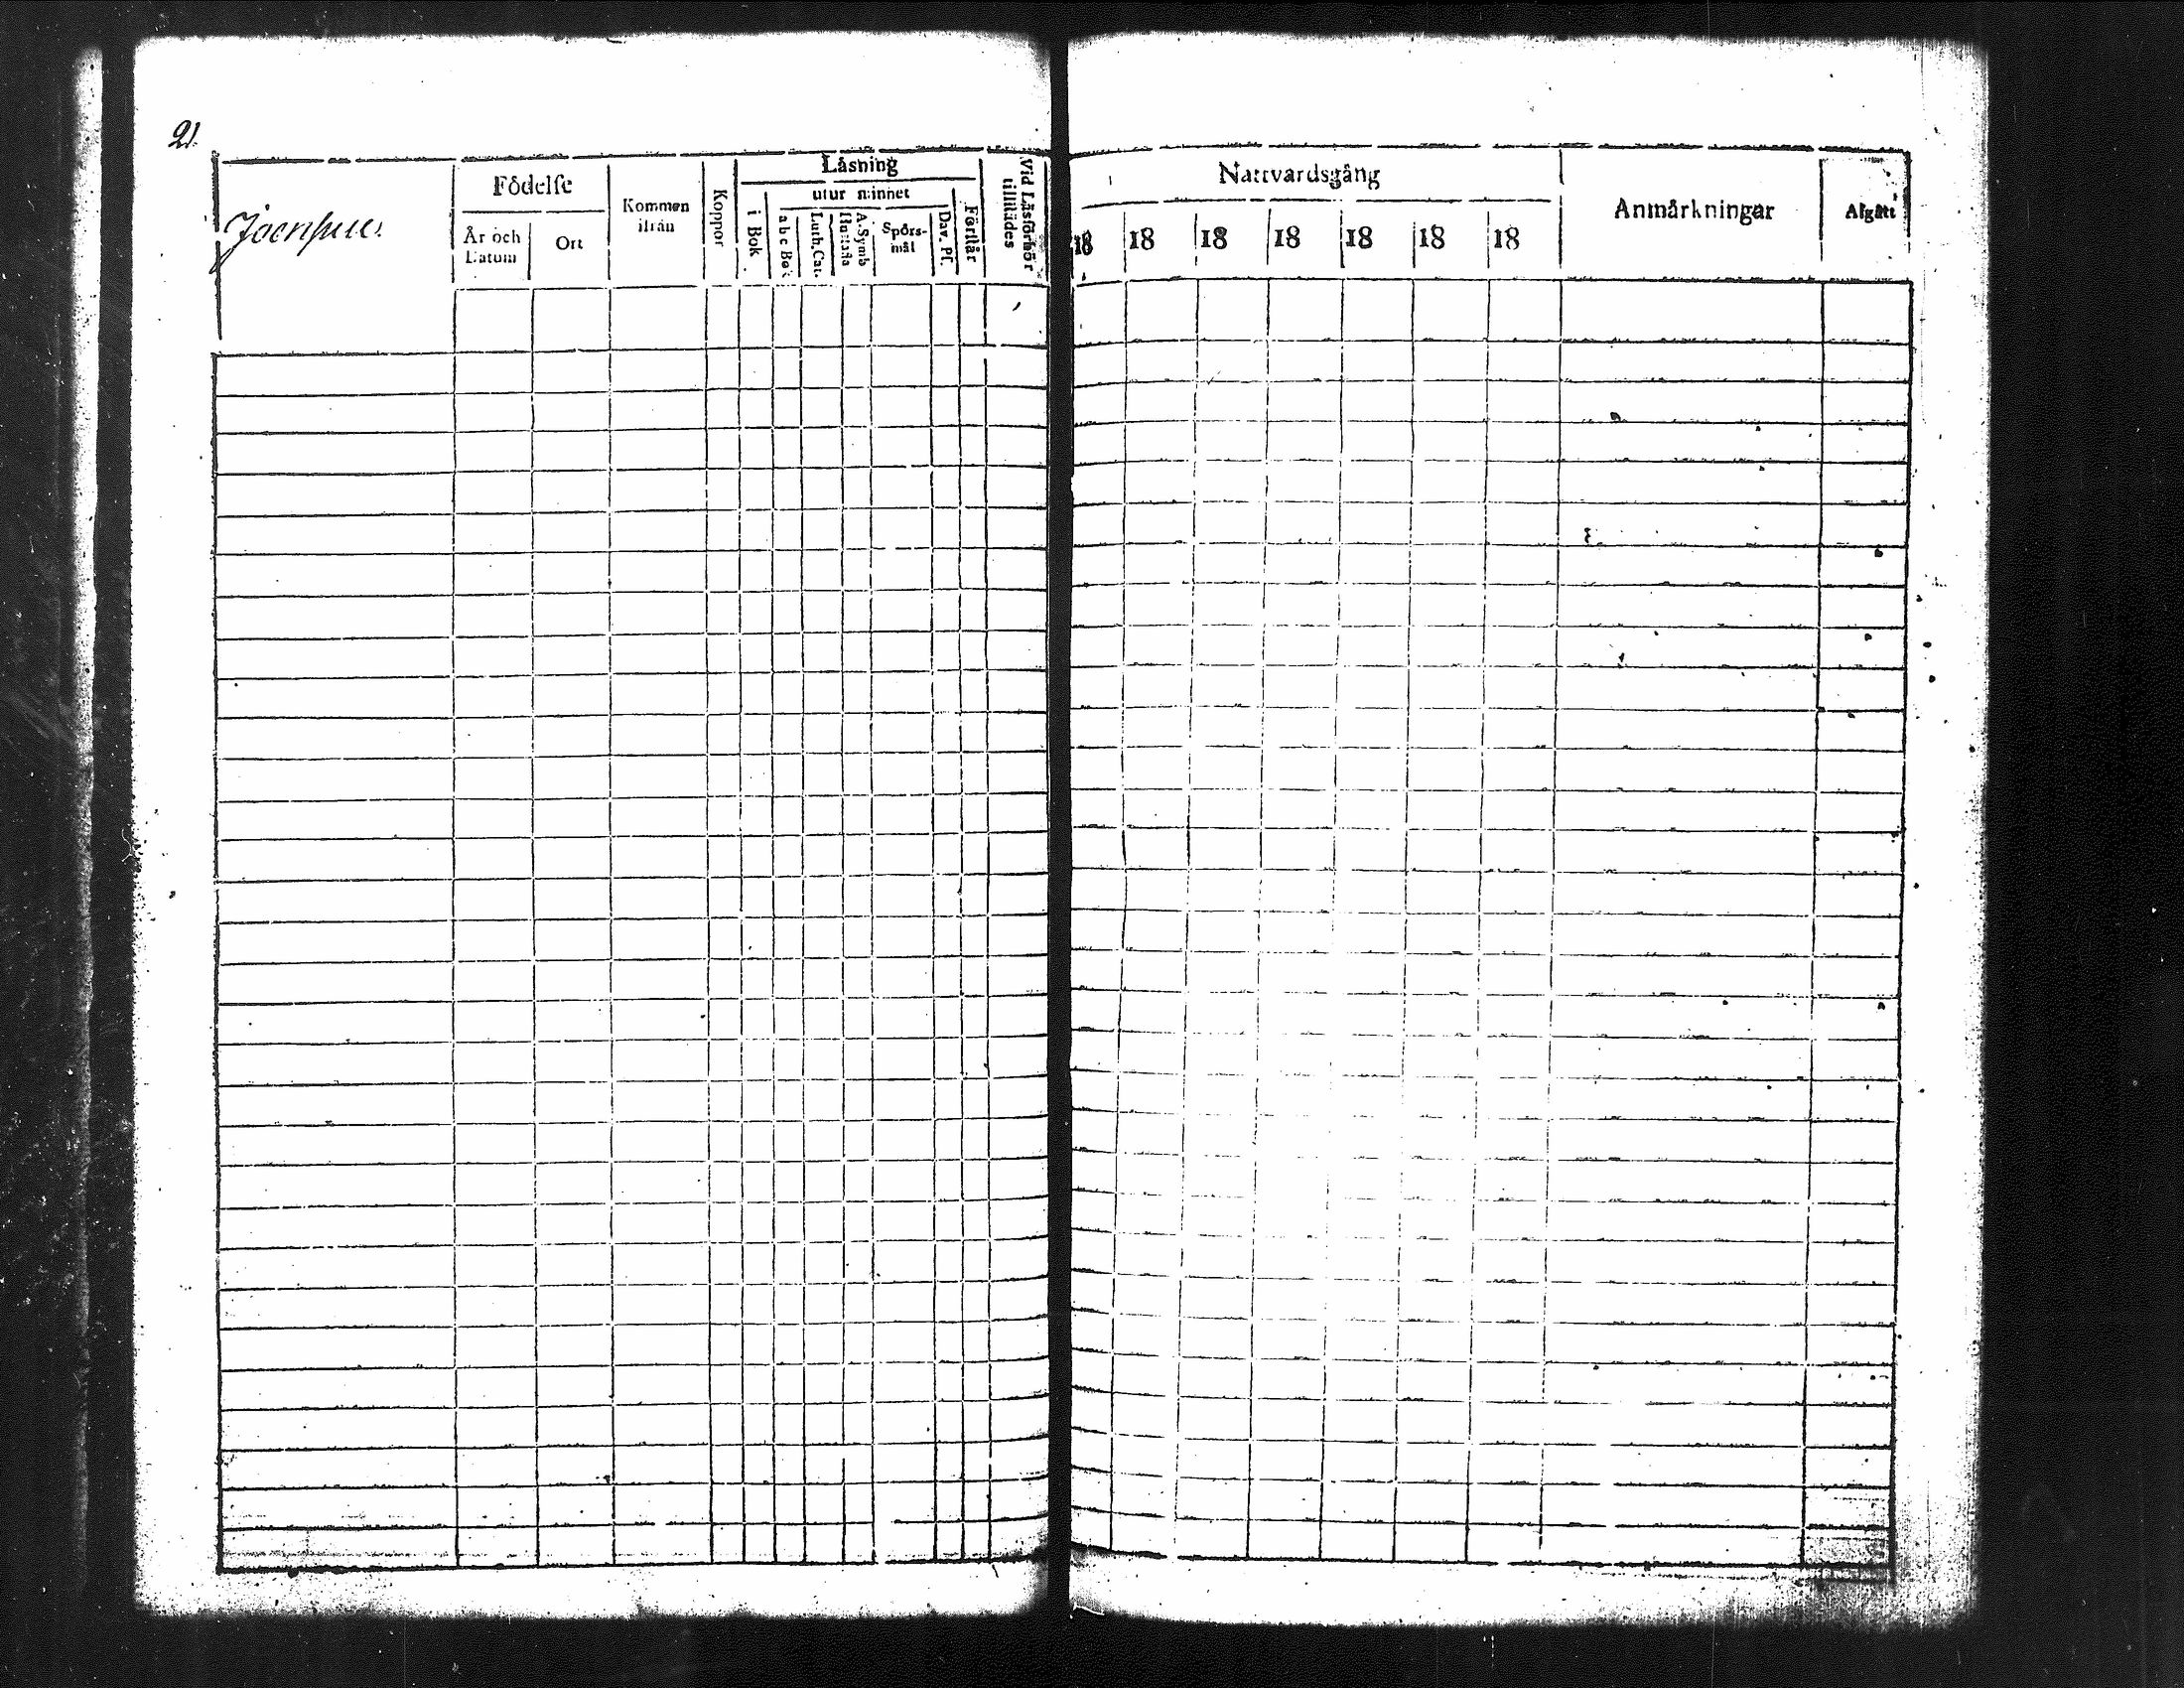 21.
Joensuu.
Födelse
År och Datum
Ort
Kommen ifrån
Koppor
Läsning
i Bok
utur minnet
a b c Bok
Luth. Cat.
A. Symb
Hustafla
Spörsmål
Dav. Ps.
Förstår
Vid Läsförhör tillstädes
Nattvardsgång
18 18 18 18 18 18 18
Anmärkningar
Afgått